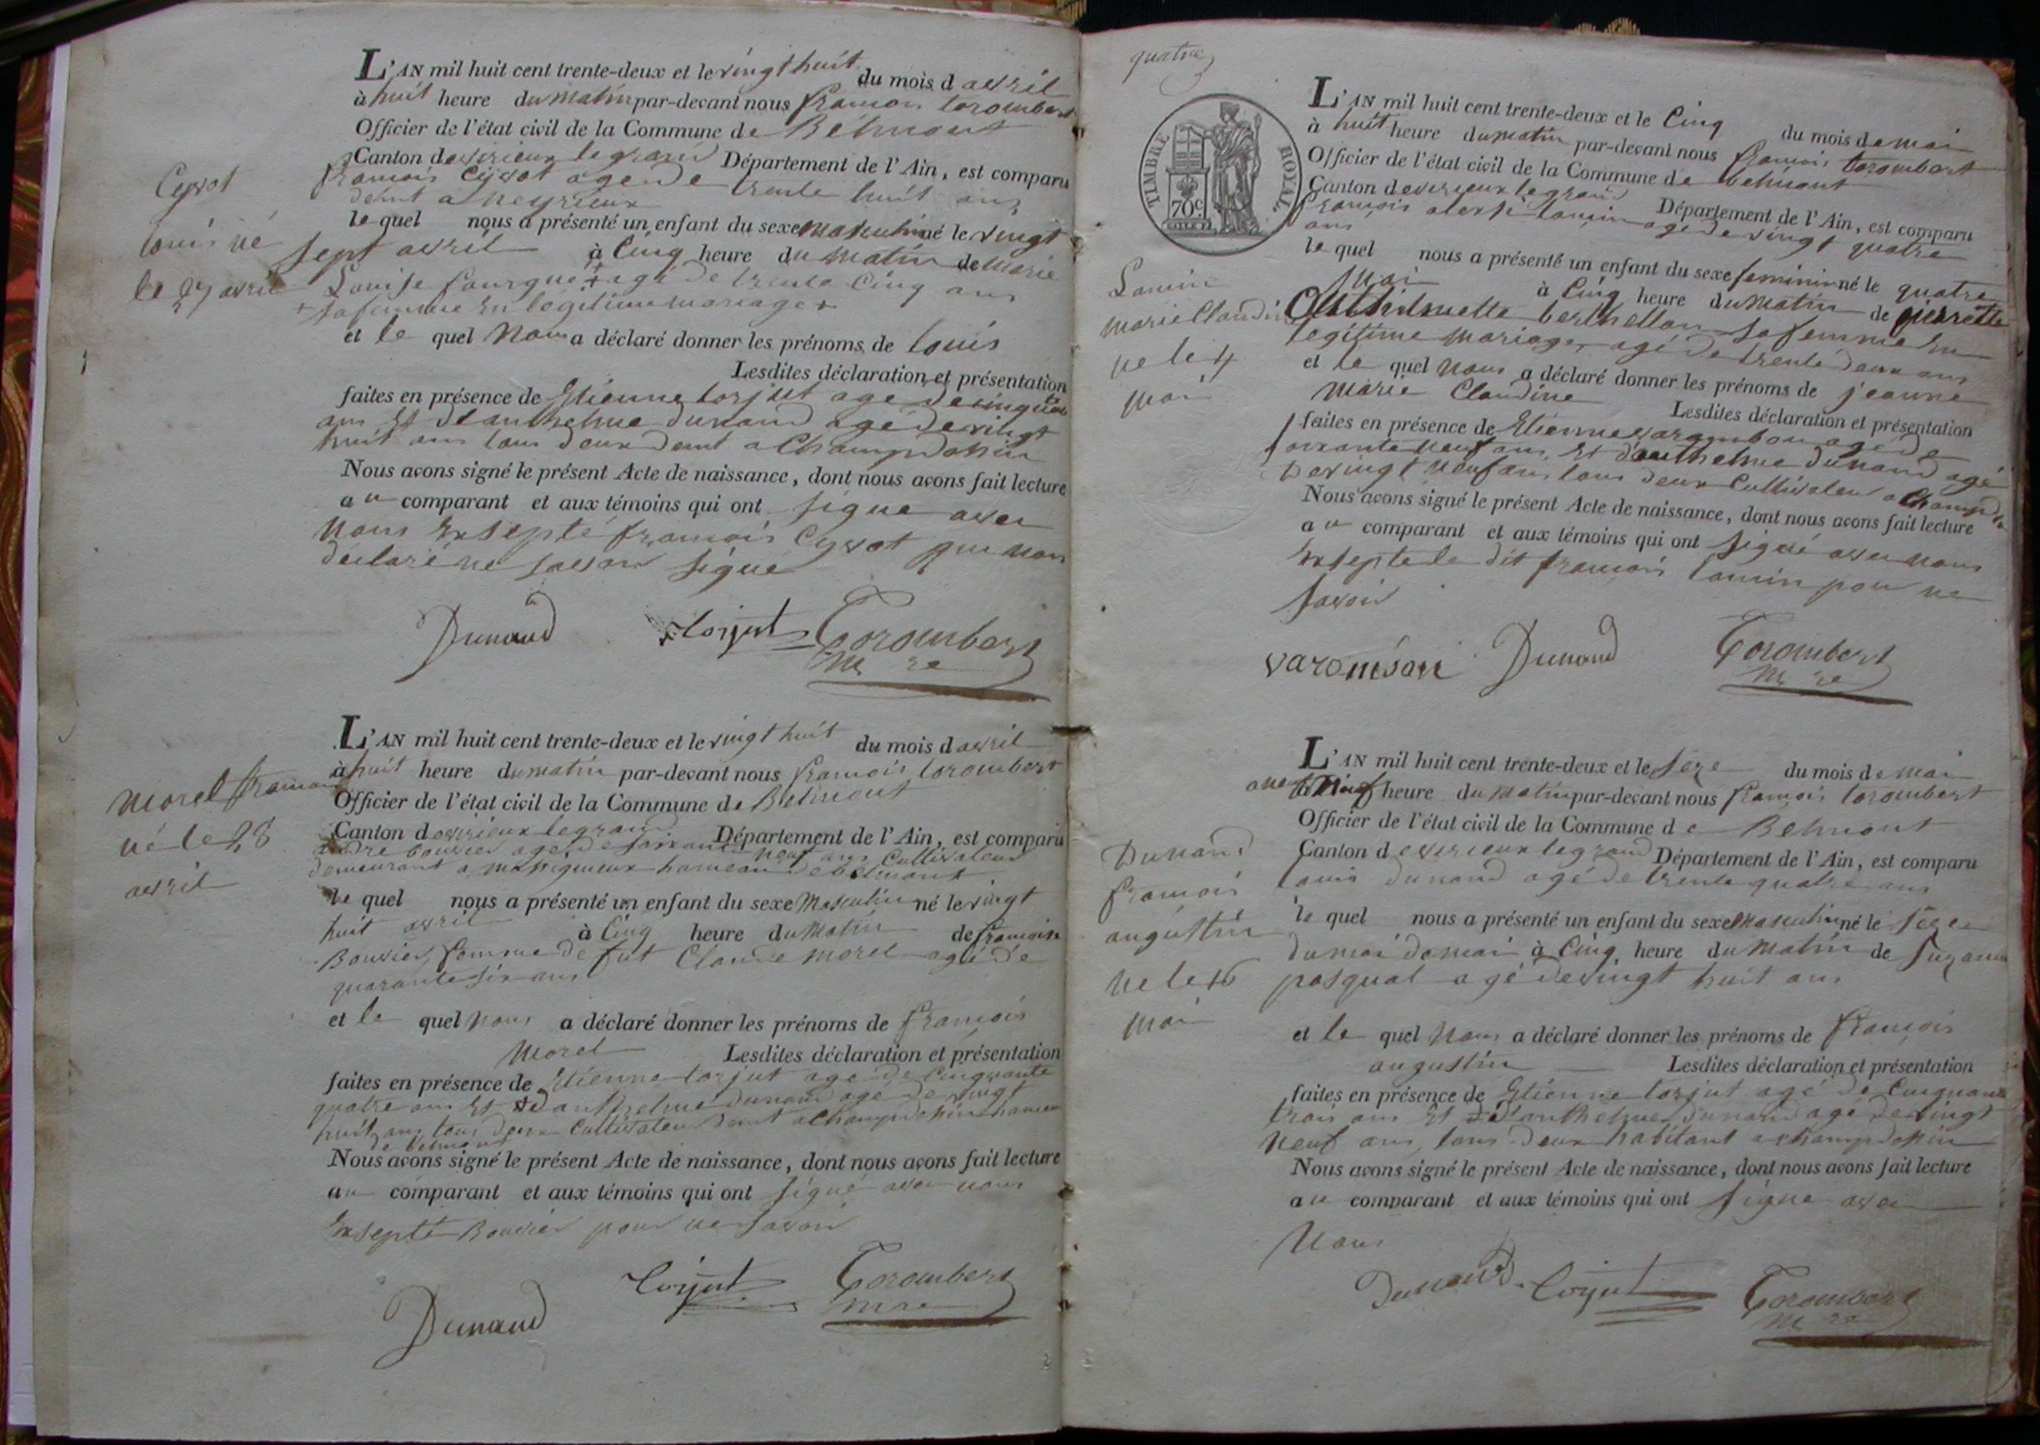 Ceyzot
Louis né
le 27 avril
L'AN mil huit cent trente-deux et le vingt huit du mois d avril
à huit heure du matin par-devant nous françois torombert
Officier de l'état civil de la Commune de Belmont
Canton de virieux le grand Département de l'Ain, est comparu
françois Ceyzot agé de trente huit ans
demt a neyrieux
le quel nous a présenté un enfant du sexe masculin né le vingt
sept avril à Cinq heure du matin de marie
Louise + agé de trente Cinq ans
+ sa femme en legitime mariage +
et le quel Nous a déclaré donner les prénoms de Louis
Lesdites déclaration et présentation
faites en présence de Etienne torjut agé de cinquante
ans et d'anthelme dunand agé de vingt
huit ans tous deux demt a Champdossin
Nous avons signé le présent Acte de naissance, dont nous avons fait lecture
au comparant et aux témoins qui ont signe avec
nous Exsepté françois Ceyzot qui nous
declaré ne savoir signé
Dunand torjut Torombert
mre
morel françois
né le 28
avril
L'AN mil huit cent trente-deux et le vingt huit du mois d avril
à huit heure du matin par-devant nous françois torombert
Officier de l'état civil de la Commune de Belmont
Canton de virieux le grand Département de l'Ain, est comparu
andre bouvier agé de soixante neuf ans Cultivateur
demeurant a massigneux hameau de belmont
le quel nous a présenté un enfant du sexe masculin né le vingt
huit avril à Cinq heure du matin de françoise
Bouvier femme de fut Claude morel agé de
quarante six ans
et le quel nous a déclaré donner les prénoms de françois
morel Lesdites déclaration et présentation
faites en présence de Etienne torjut agé de Cinquante
quatre ans et d'anthelme dunand agé de vingt
huit ans tous deux Cultivateur demt a Champdossin hameau
de belmont
Nous avons signé le présent Acte de naissance, dont nous avons fait lecture
au comparant et aux témoins qui ont signé avec nous
Exsepté Bouvier pour ne savoir
Dunand torjut Torombert
mre
quatre
TIMBRE ROYAL
70c
Lamin
marie Claudine
né le 4
mai
L'AN mil huit cent trente-deux et le Cinq du mois de mai
à huit heure du matin par-devant nous françois torombert
Officier de l'état civil de la Commune de belmont
Canton de virieux le grand Département de l'Ain, est comparu
françois alexi Lamin agé de vingt quatre
ans
le quel nous a présenté un enfant du sexe feminin né le quatre
mai à Cinq heure du matin de pierrette
berthellon sa femme En
legitime mariage, agé de trente deux ans
et le quel Nous a déclaré donner les prénoms de jeanne
marie Claudine Lesdites déclaration et présentation
faites en présence de Etienne varambon agé de
soixante neuf ans et d'anthelme dunand agé
de vingt neuf ans tous deux Cultivateur a Champd
Nous avons signé le présent Acte de naissance, dont nous avons fait lecture
au comparant et aux témoins qui ont signé avec nous
Exsepte le dit françois Lamin pour ne
savoir
varombon Dunand Torombert
mre
Dunand
françois
augustin
né le 16
mai
L'AN mil huit cent trente-deux et le seze du mois de mai
a neuf heure du matin par-devant nous françois torombert
Officier de l'état civil de la Commune de Belmont
Canton de virieux le grand Département de l'Ain, est comparu
Louis dunand agé de trente quatre ans
le quel nous a présenté un enfant du sexe masculin né le seze
du moi de mai à Cinq heure du matin de suzanne
pasqual agé de vingt huit ans
et le quel Nous a déclaré donner les prénoms de françois
augustin Lesdites déclaration et présentation
faites en présence de Etienne torjut agé de Cinquante
trois ans et de d'anthelme dunand agé de vingt
neuf ans, tous deux habitant a champdossin
Nous avons signé le présent Acte de naissance, dont nous avons fait lecture
au comparant et aux témoins qui ont signe avec
Nous
Dunand torjut Torombert
mre